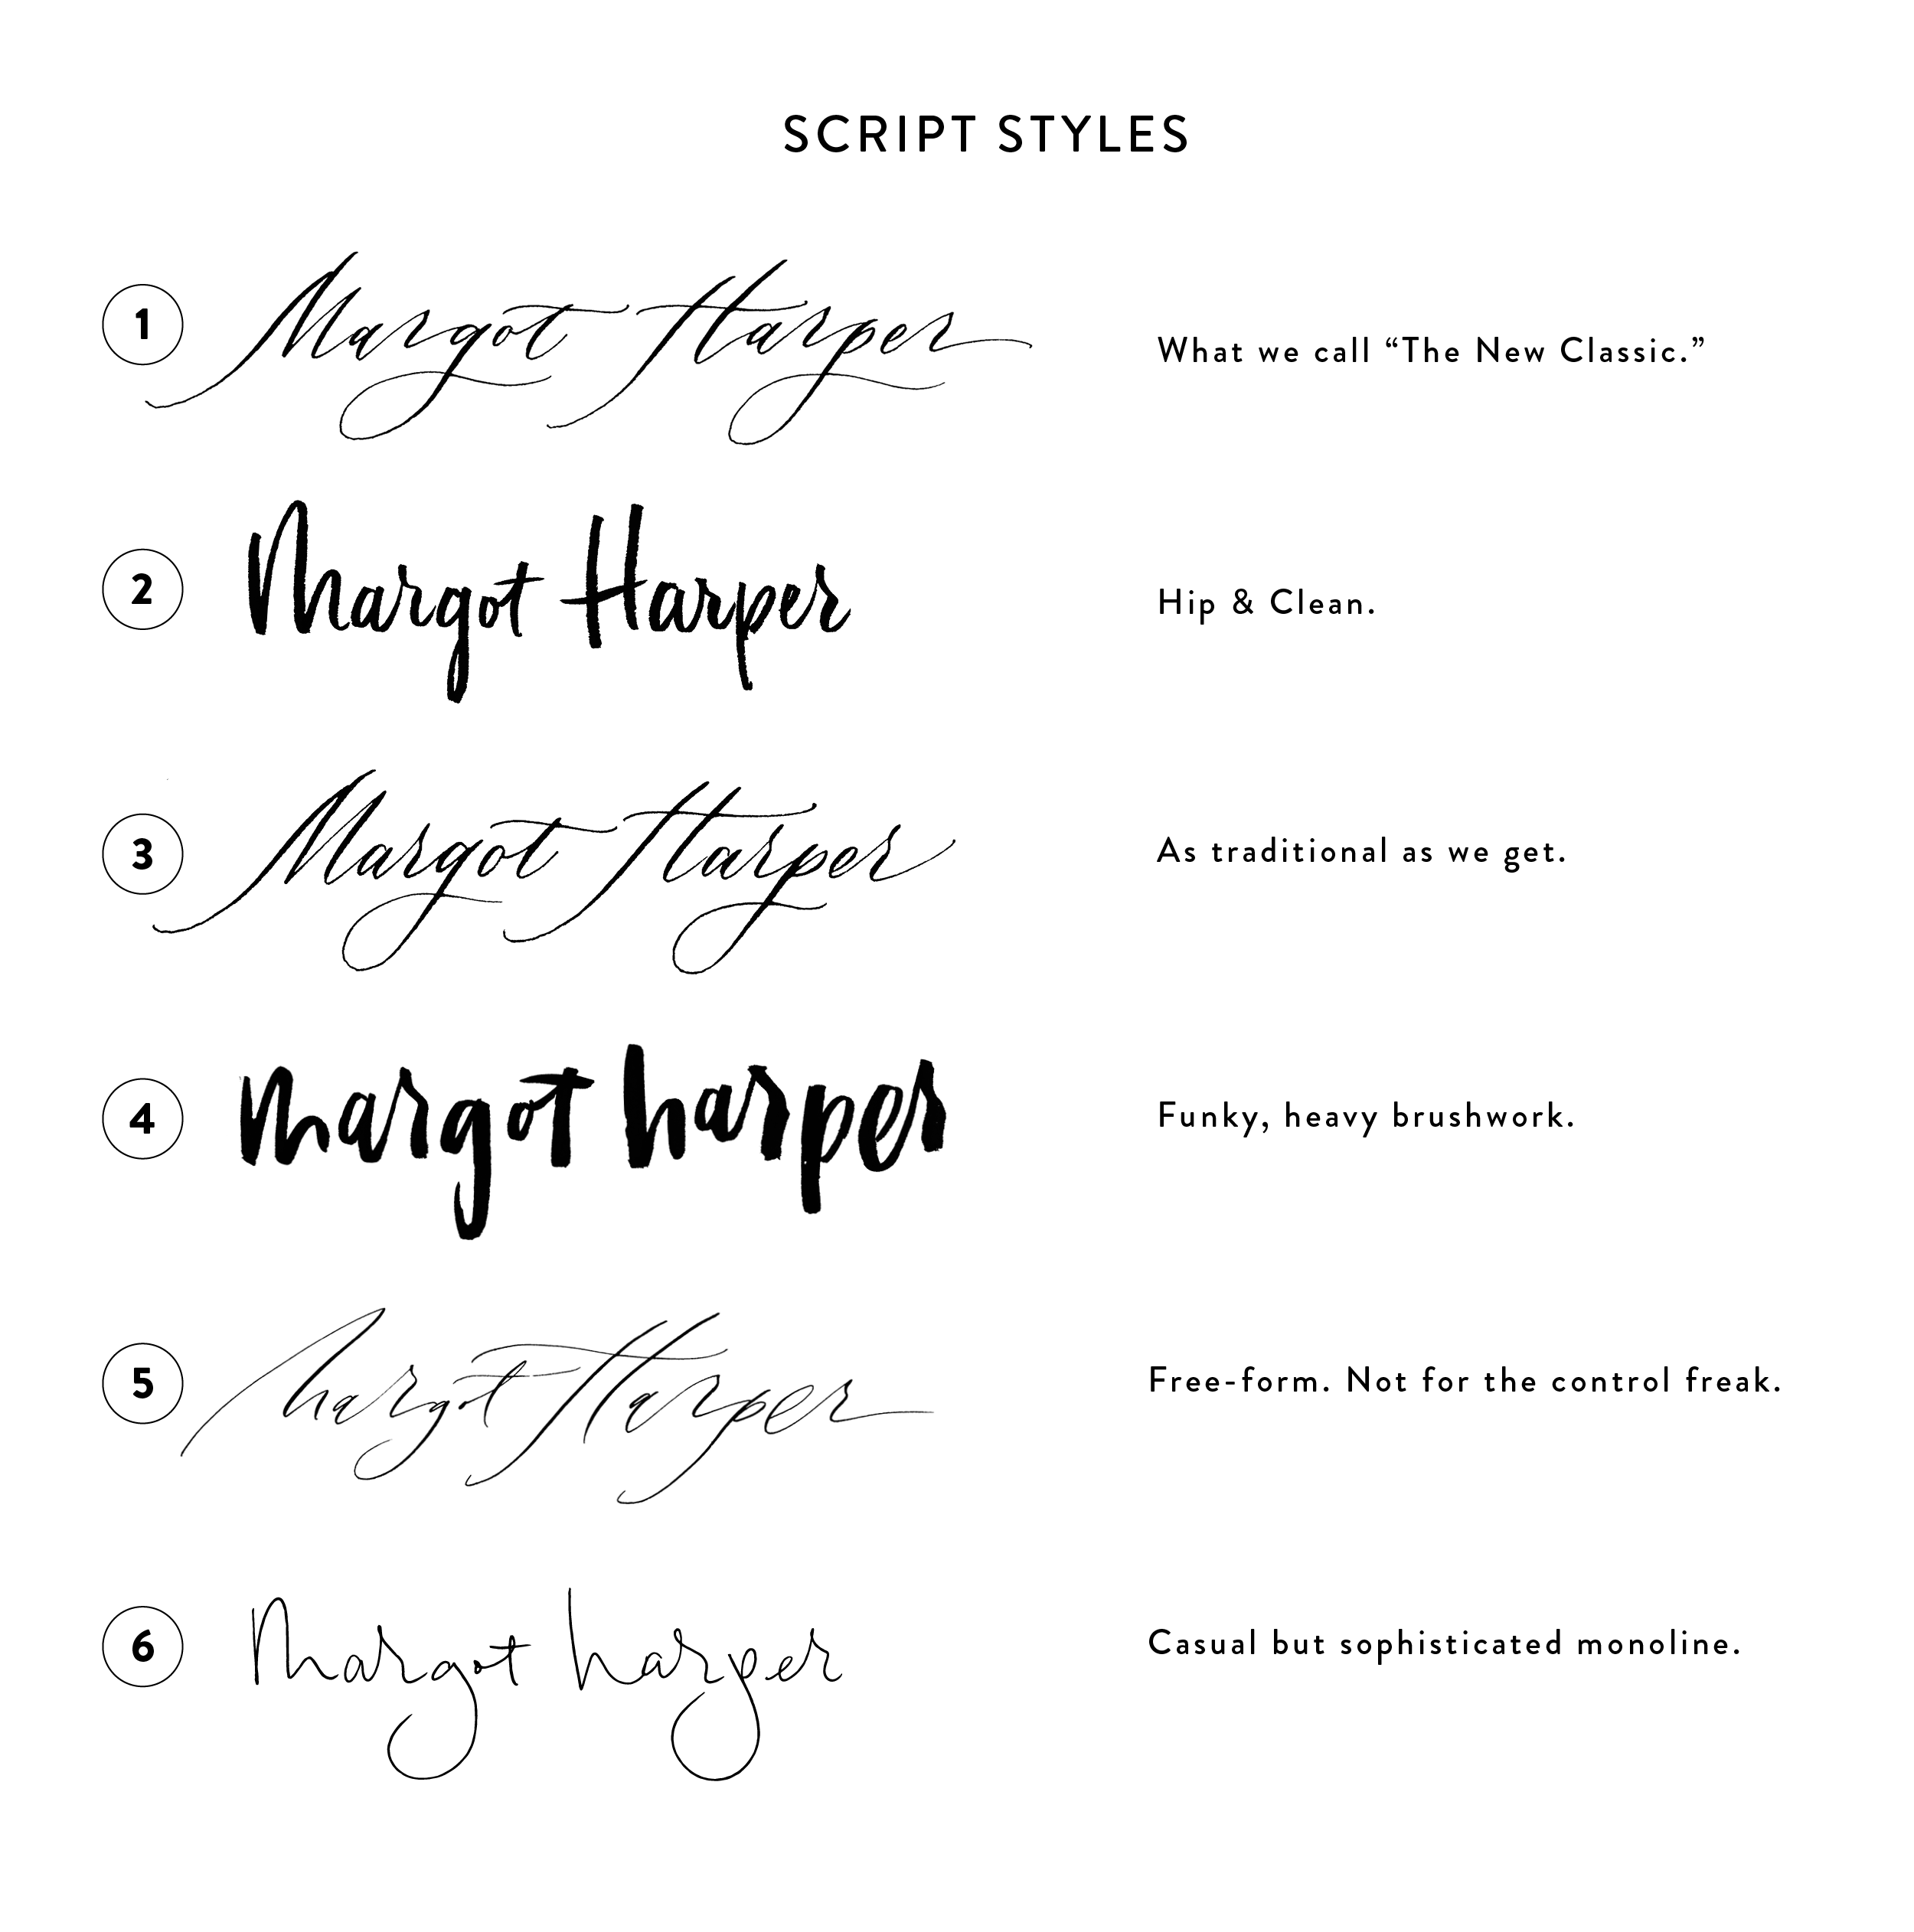 SCRIPT STYLES
1 Margot Harper What we call “The New Classic.”
2 Margot Harper Hip & Clean.
3 Margot Harper As traditional as we get.
4 margot harper Funky, heavy brushwork.
5 Margot Harper Free-form. Not for the control freak.
6 Margot harper Casual but sophisticated monoline.